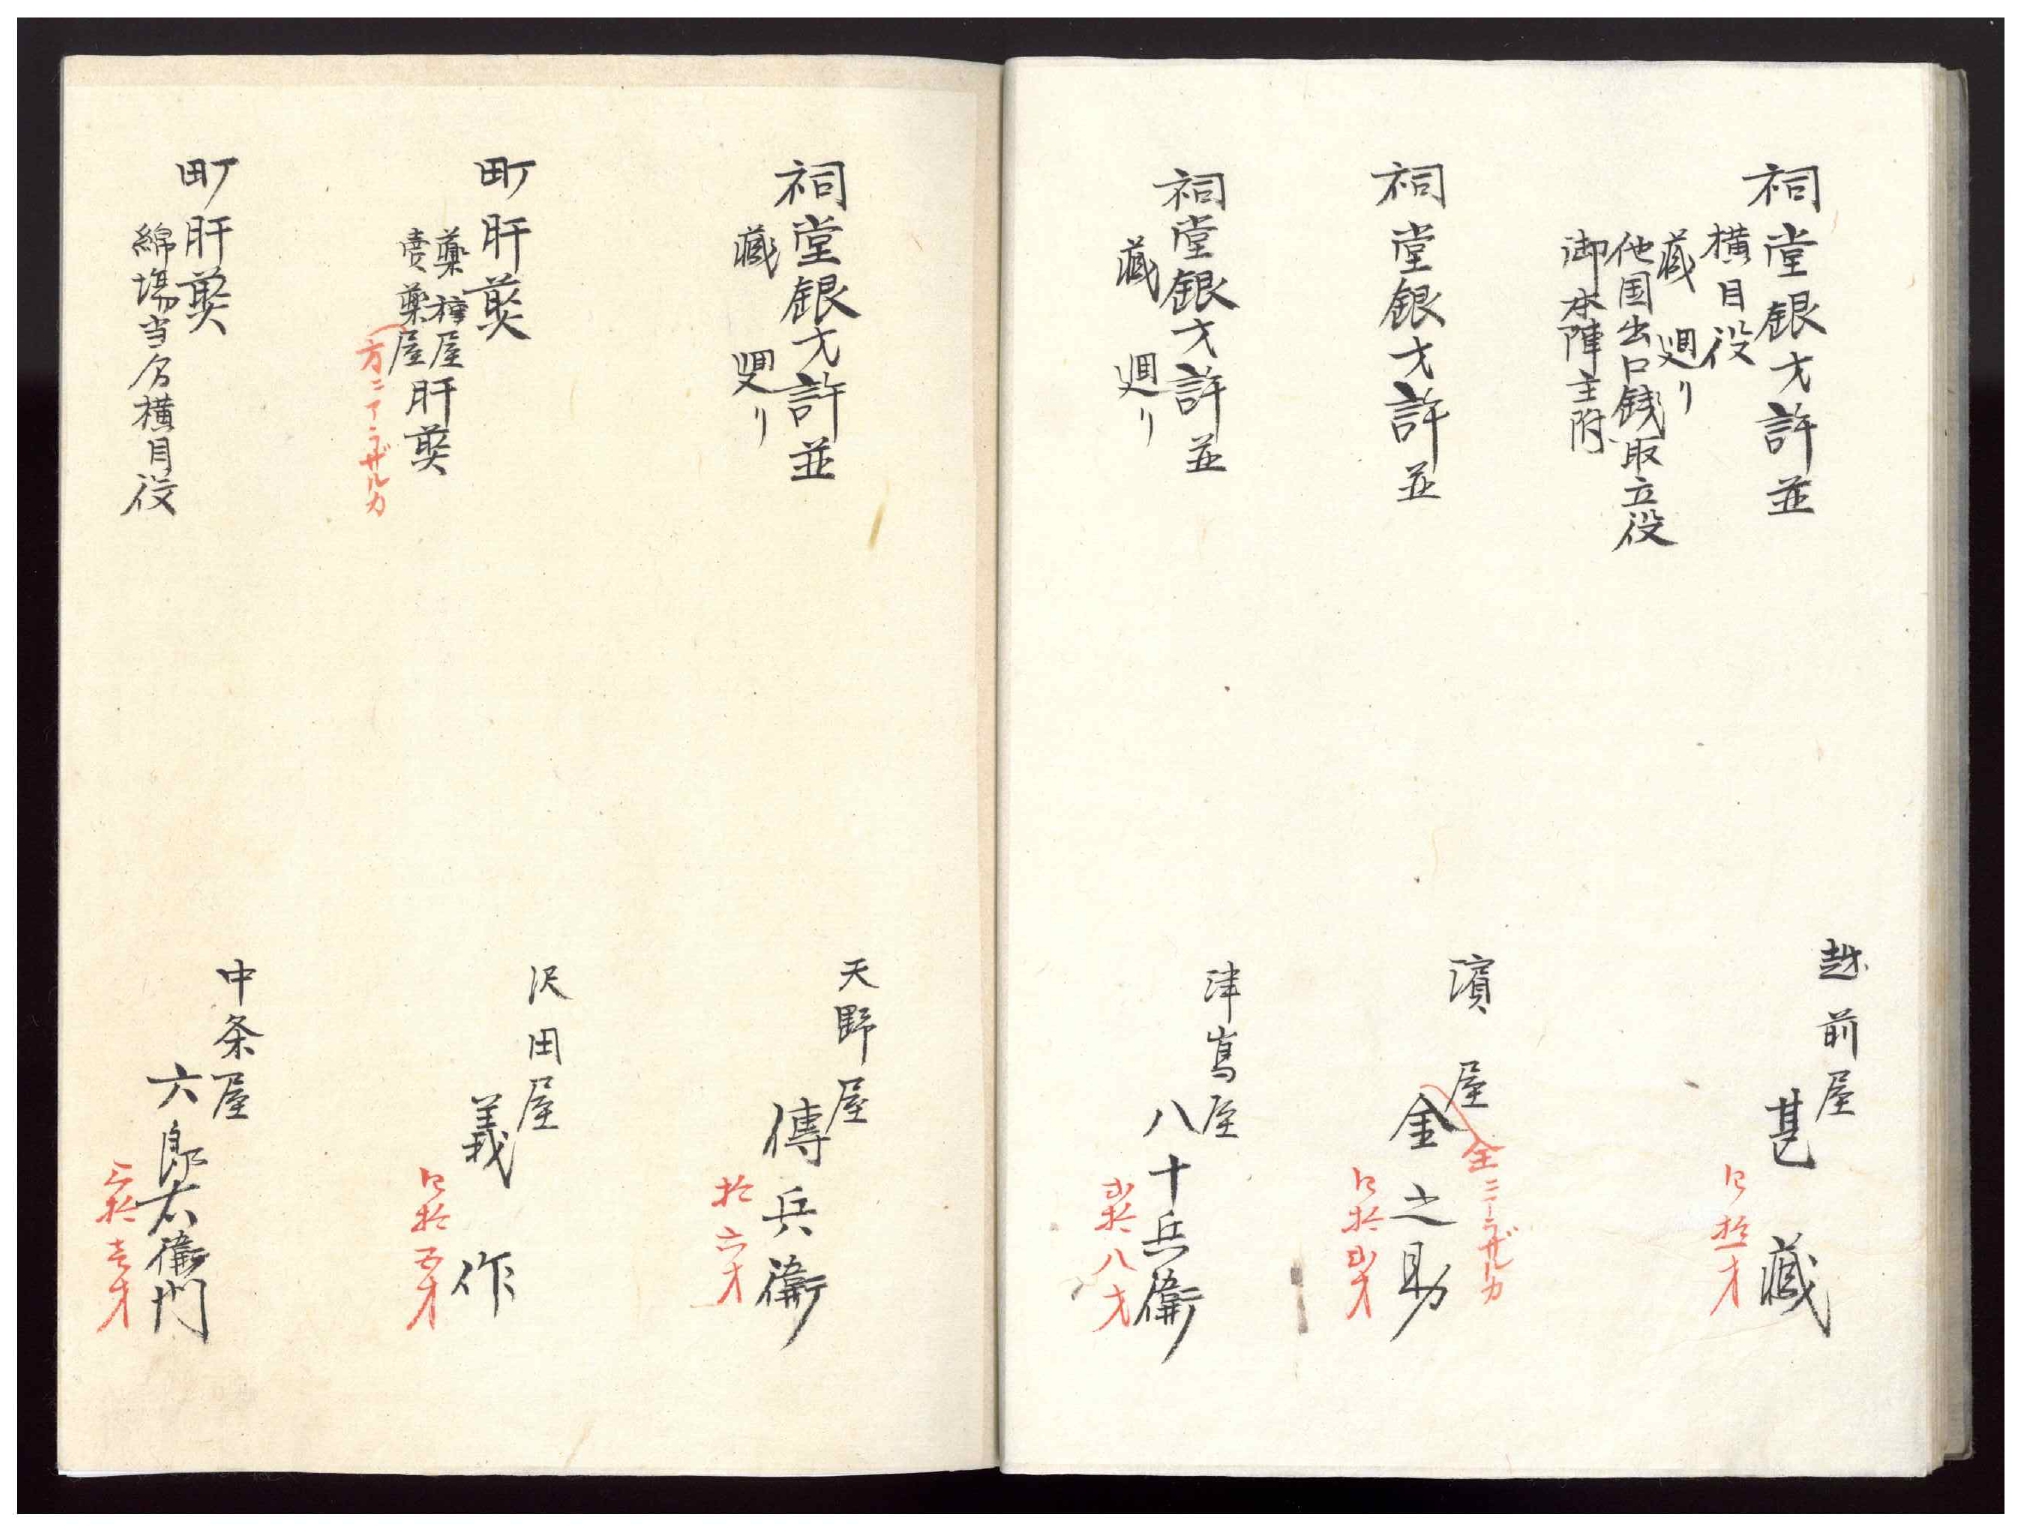 祠堂銀才許並
横目役
蔵廻り
他国出口銭取立役
御本陣主附
越前屋
甚蔵
四拾一才
祠堂銀才許並
濱屋
金之助
全ニアラザルカ
四拾弐才
祠堂銀才許並
蔵廻り
津嶌屋
八十兵衛
弐拾八才
祠堂銀才許並
蔵廻り
天野屋
傳兵衛
拾六才
町肝煎
薬種屋
売薬屋
肝煎
方ニアラザルカ
沢田屋
義作
四拾五才
町肝煎
綿場当分横目役
中条屋
六郎右衛門
三拾壱才